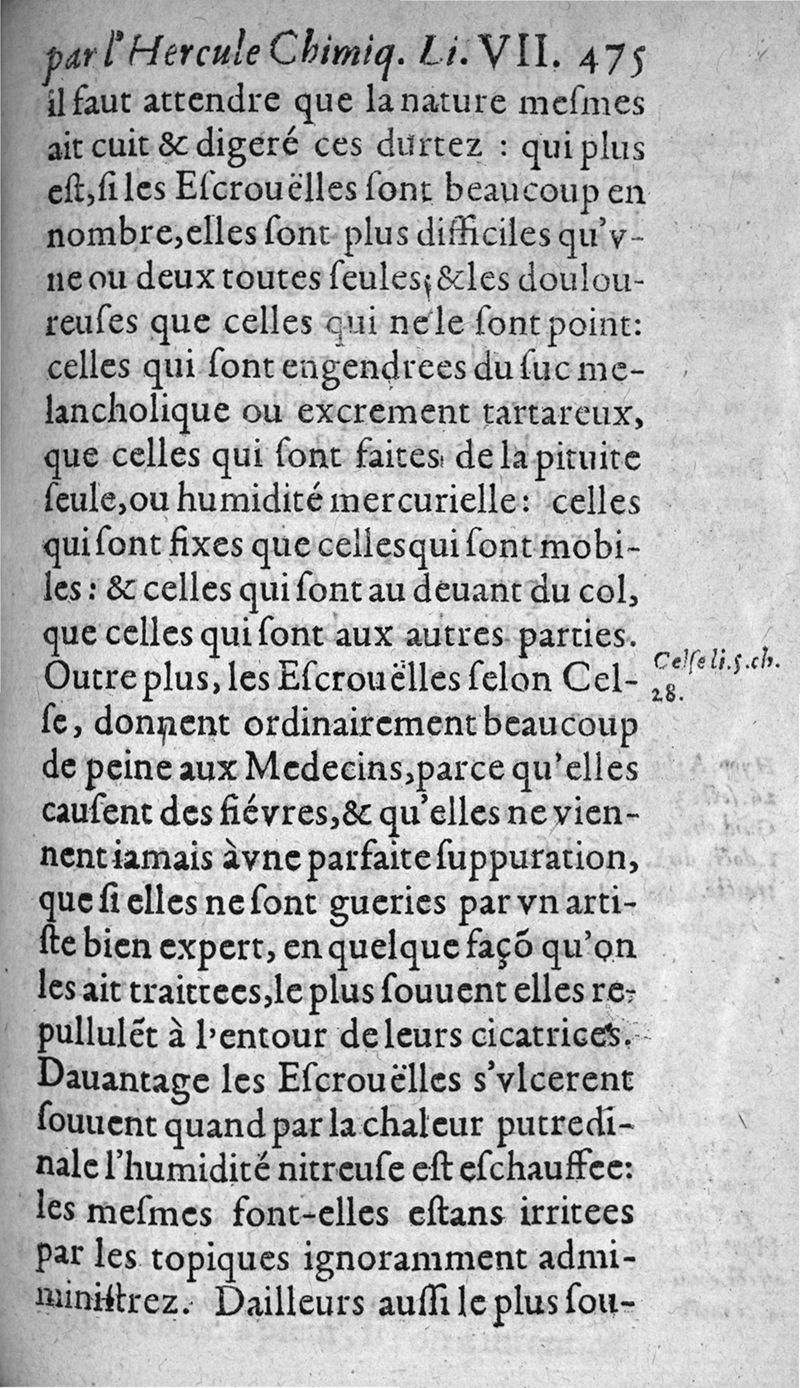 par l'Hercule Chimiq. Li. VII. 475
il faut attendre que la nature meſmes
ait cuit & digeré ces durtez : qui plus
eſt, ſi les Eſcrouëlles ſont beaucoup en
nombre, elles ſont plus difficiles qu'v-
ne ou deux toutes ſeules; & les doulou-
reuſes que celles qui ne le ſont point:
celles qui ſont engendrees du ſuc me-
lancholique ou excrement tartareux,
que celles qui ſont faites de la pituite
ſeule, ou humidité mercurielle: celles
qui ſont fixes que celles qui ſont mobi-
les: & celles qui ſont au deuant du col,
que celles qui ſont aux autres parties.
Outre plus, les Eſcrouëlles ſelon Cel-
Celſe li.5.ch.
28.
ſe, donnent ordinairement beaucoup
de peine aux Medecins, parce qu'elles
cauſent des fiévres, & qu'elles ne vien-
nent iamais à vne parfaite ſuppuration,
que ſi elles ne ſont gueries par vn arti-
ſte bien expert, en quelque façõ qu'on
les ait traittees, le plus ſouuent elles re-
pullulẽt à l'entour de leurs cicatrices.
Dauantage les Eſcrouëlles s'vlcerent
ſouuent quand par la chaleur putredi-
nale l'humidité nitreuſe eſt eſchauffee:
les meſmes font-elles eſtans irritees
par les topiques ignoramment admi-
miniſtrez. Dailleurs auſſi le plus ſou-